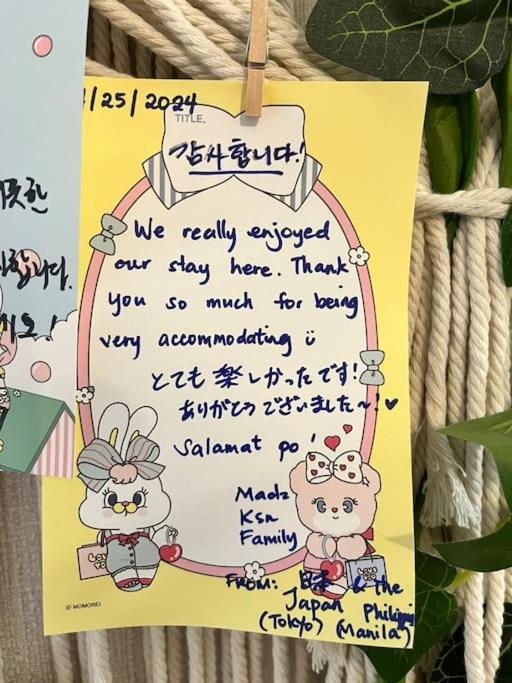 /25/2024
TITLE.
감사합니다!
We really enjoyed
our stay here. Thank
you so much for being
very accommodating ü
とても楽しかったです!
ありがとうございました〜!♥
Salamat po!
Madz
Ksn
Family
From: 日本 & the
Japan Philippines
(Tokyo) (Manila)
LOVE YOU
LOVE YOU
© MOMOREI